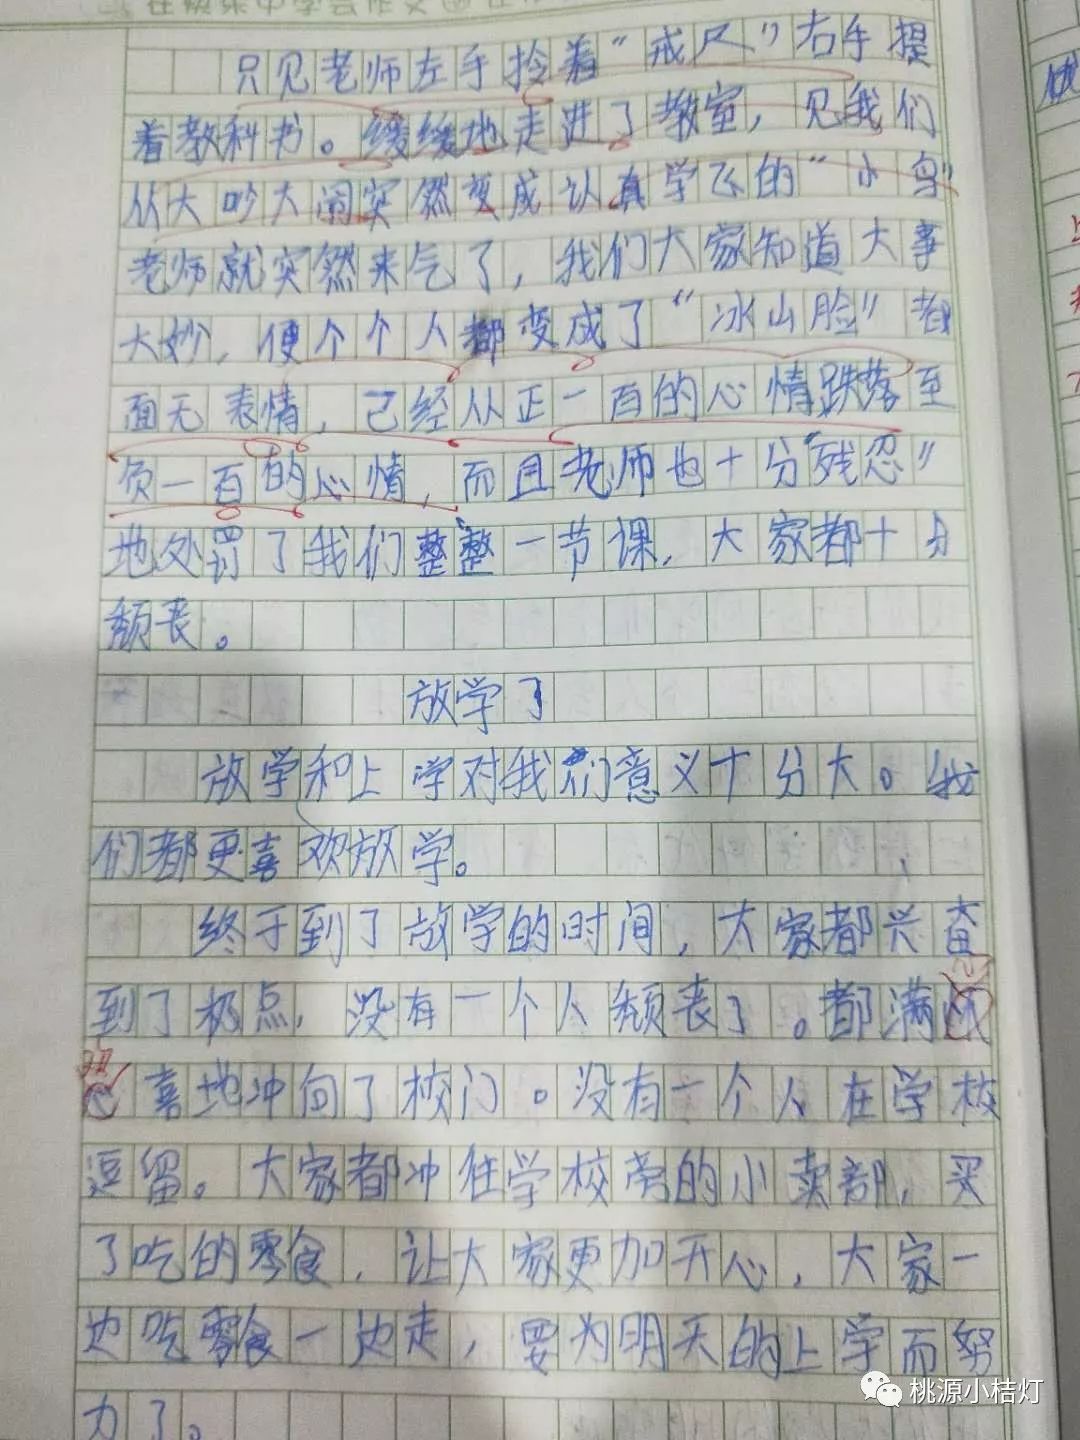 只见老师左手拎着“戒尺”右手提
着教科书。缓缓地走进了教室，见我们
从大吵大闹突然变成认真学飞的“小鸟”
老师就突然来气了，我们大家知道大事
大妙，便个个人都变成了“冰山脸”都
面无表情，已经从正一百的心情跌落至
负一百的心情，而且老师也十分“残忍”
地处罚了我们整整一节课，大家都十分
颓丧。
放学了
放学和上学对我们意义十分大。我
们都更喜欢放学。
终于到了放学的时间，大家都兴奋
到了极点，没有一个人颓丧了。都满
喜地冲向了校门。没有一个人在学校
逗留。大家都冲往学校旁的小卖部，买
了吃的零食，让大家更加开心，大家一
边吃零食一边走，要为明天的上学而努
力了。
桃源小桔灯